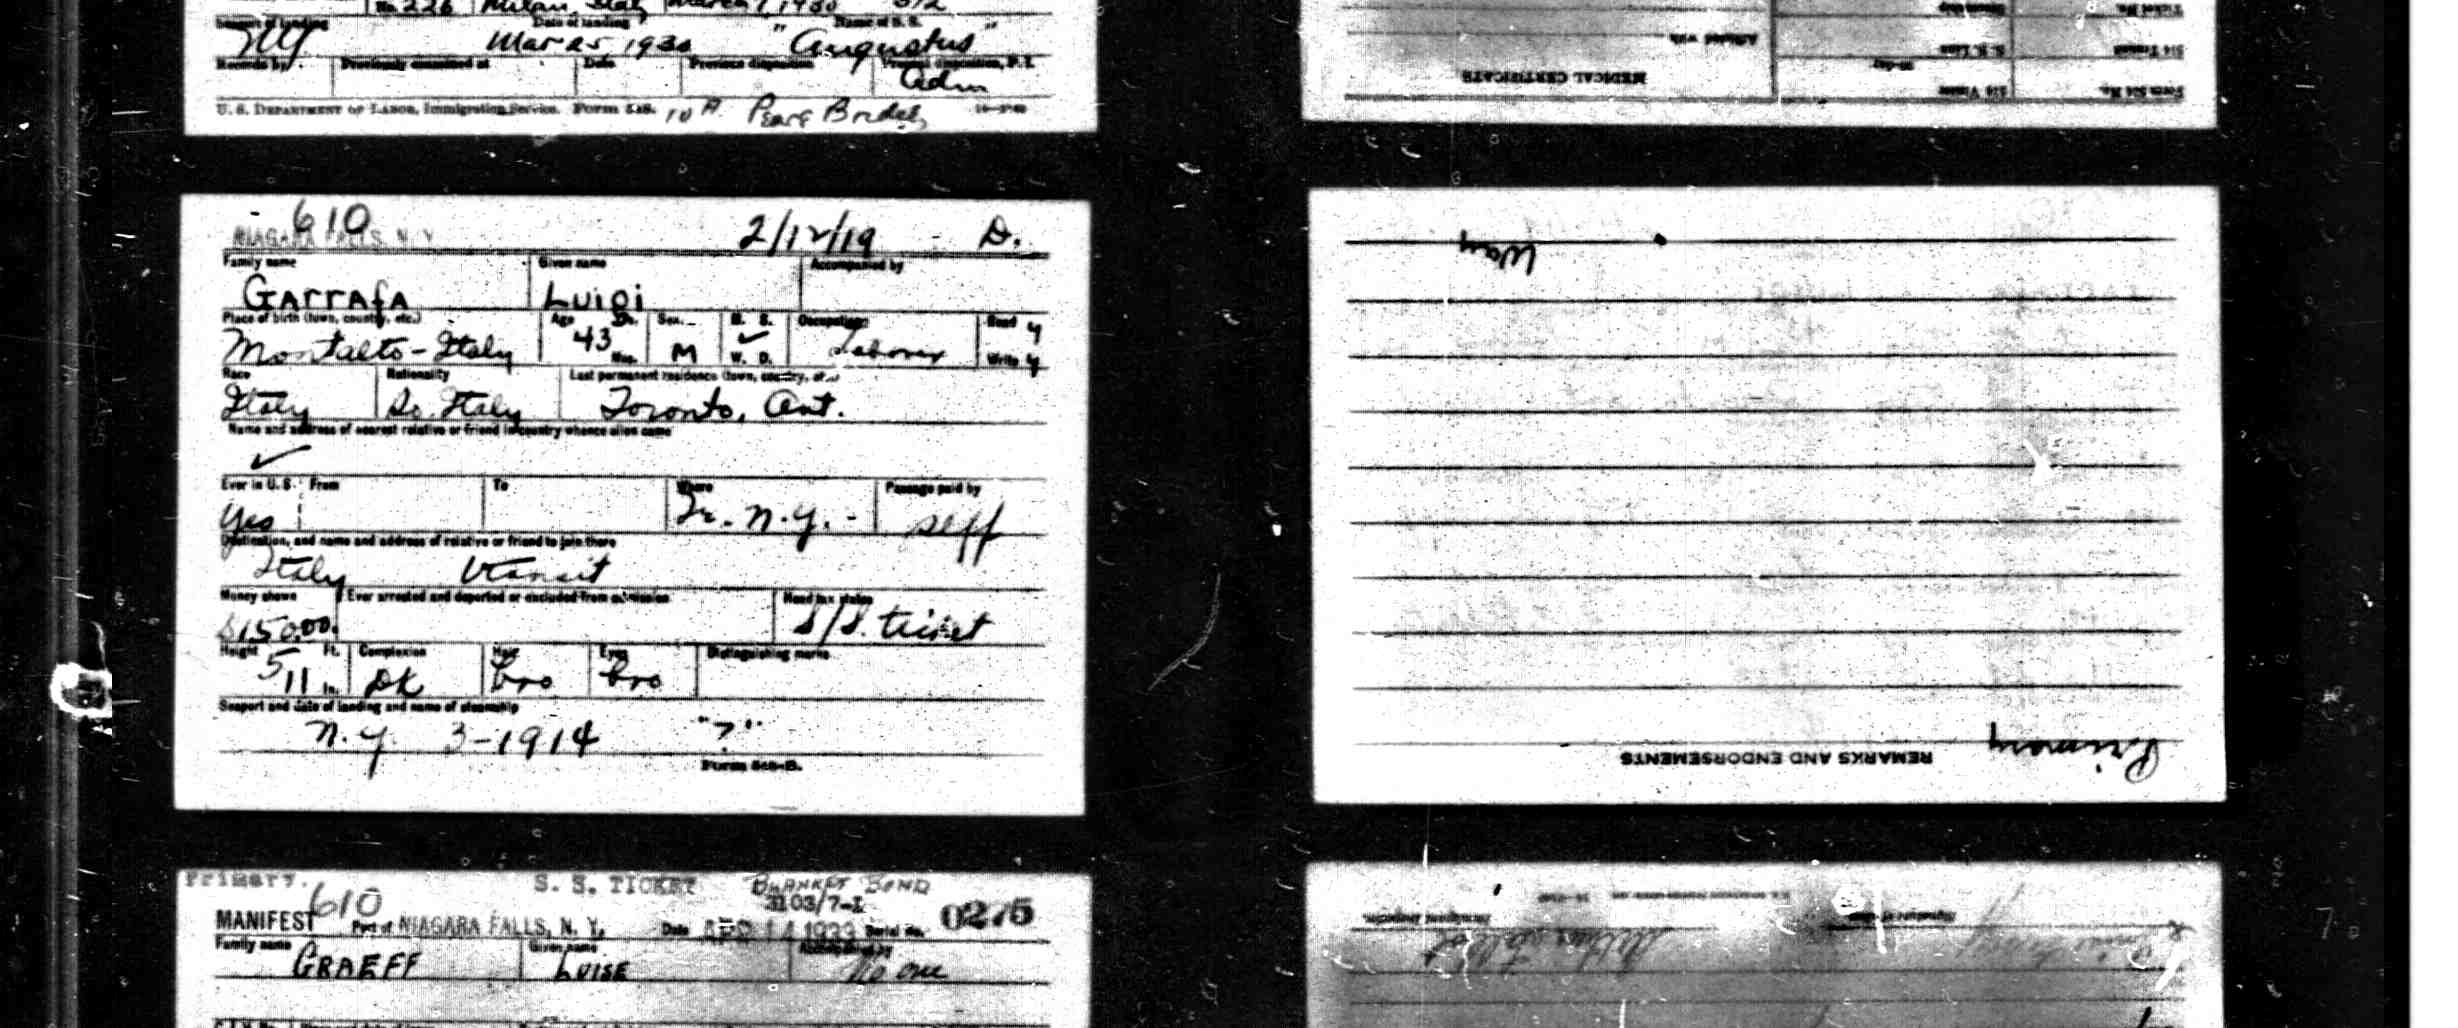 No. 226 Milan, Italy March 1, 1930 312
Season of landing Date of landing Name of S. S.
NY Mar 25, 1930 "Augustus"
Records by Previously examined at Date Previous disposition Present disposition, P. I.
Adm
U. S. DEPARTMENT OF LABOR, Immigration Service. Form 548.
610
NIAGARA FALLS N. Y. 2/12/19 D.
Family name Given name Accompanied by
GArrAfA Luigi
Place of birth (town, country, etc.) Age Yrs. Sex M. S. Occupation Read y
Montalto - Italy 43 Mos. M ✓ W. D. Laborer Write y
Race Nationality Last permanent residence (town, country, etc.)
Italy So. Italy Toronto, Ont.
Name and address of nearest relative or friend in country whence alien came
✓
Ever in U. S. From To Where Passage paid by
Yes Tr. N.Y. - self
Destination, and name and address of relative or friend to join there
Italy transit
Money shown Ever arrested and deported or excluded from admission Head tax status
$150.00. S/S. ticket
Height Ft. Complexion Hair Eyes Distinguishing marks
5 11 in. DK bro bro
Seaport and date of landing and name of steamship
N.Y. 3-1914 "?"
Form 548-B.
Primary. S. S. TICKET BLANKET BOND
610 3103/7-I
MANIFEST Port of NIAGARA FALLS, N. Y. Date APR 14 1933 Serial No. 0275
Family name Given name Accompanied by
GRAEFF LUISE No one
Form 524 No. 519 Visitor
514 Transit S. S. Line
Ticket No. Steamship
Affiliated with
MEDICAL CERTIFICATE
REMARKS AND ENDORSEMENTS
Primary
Way